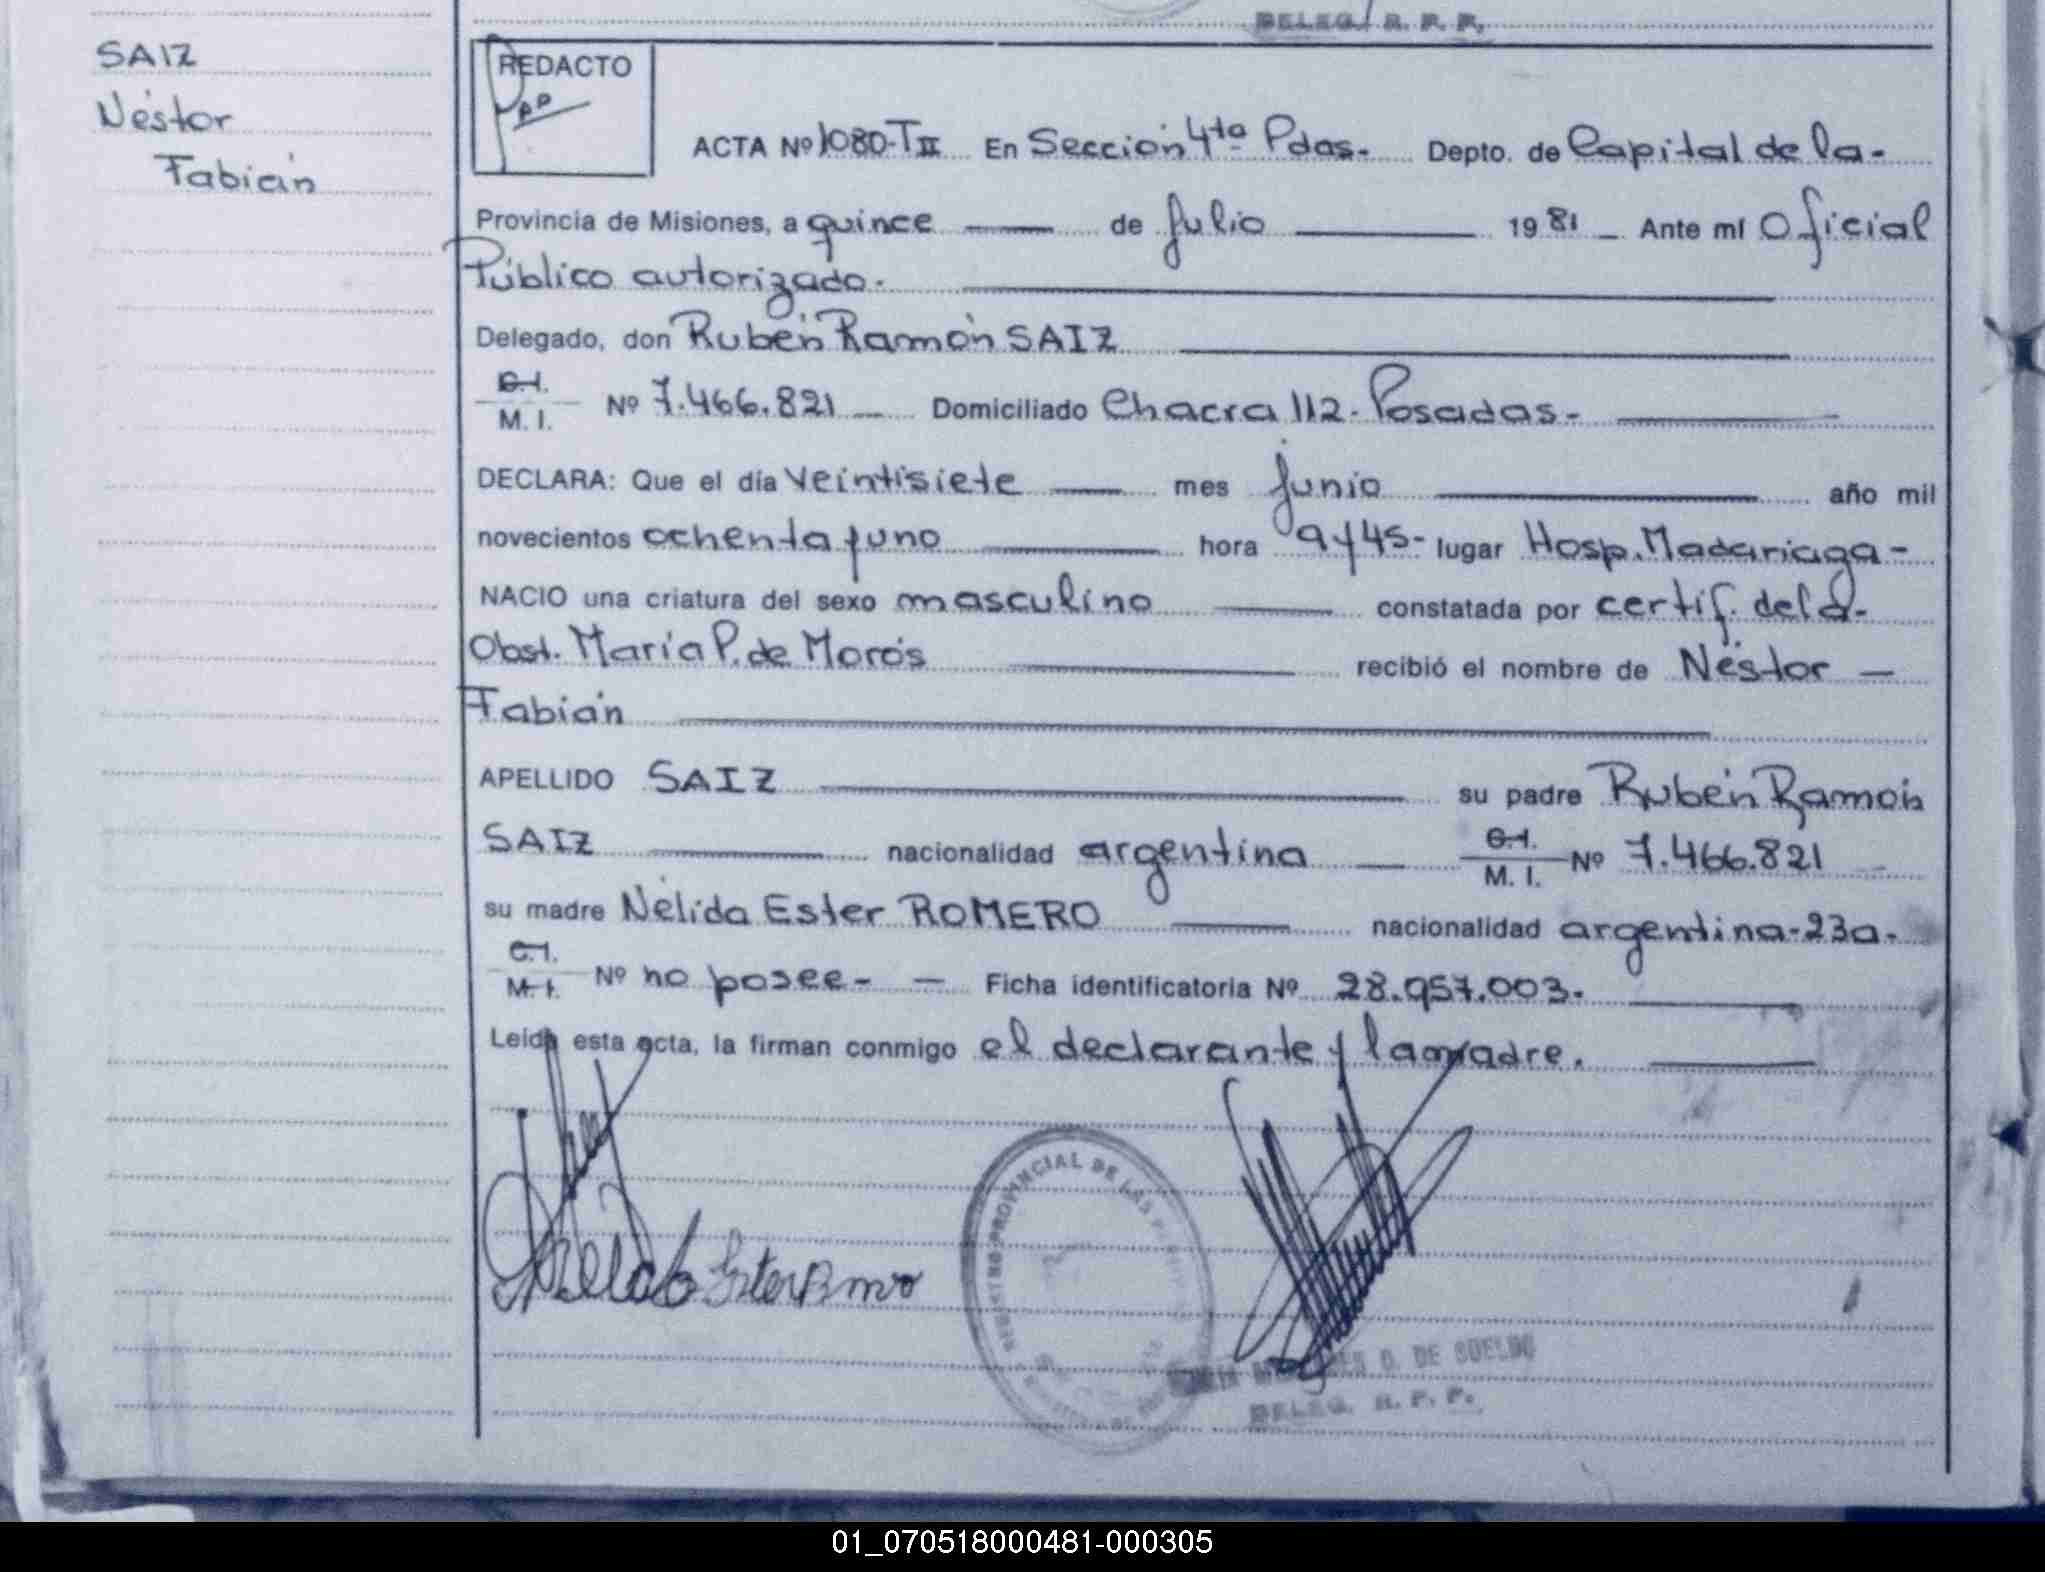 DELEG. R. P. P.
SAIZ
Néstor
Fabián
REDACTO
ACTA Nº 1080-TII En Sección 4ta Pdas.- Depto. de Capital de la-
Provincia de Misiones, a quince de julio 1981 Ante mí Oficial
Público autorizado.-
Delegado, don Rubén Ramón SAIZ
C.I.
M. I. Nº 7.466.821 Domiciliado Chacra 112- Posadas-
DECLARA: Que el día veintisiete mes junio año mil
novecientos ochenta y uno hora 9 y 45- lugar Hosp. Madariaga-
NACIO una criatura del sexo masculino constatada por certif. de la-
Obst. María P. de Morós recibió el nombre de Néstor
Fabián
APELLIDO SAIZ su padre Rubén Ramón
SAIZ nacionalidad argentina C.I.
M. I. Nº 7.466.821
su madre Nélida Ester ROMERO nacionalidad argentina-23a.
C.I.
M. I. Nº no posee- Ficha identificatoria Nº 28.957.003.
Leida esta acta, la firman conmigo el declarante y la madre.
REGISTRO PROVINCIAL DE LAS
D. DE SUELDO
DELEG. R. P. P.
01_070518000481-000305